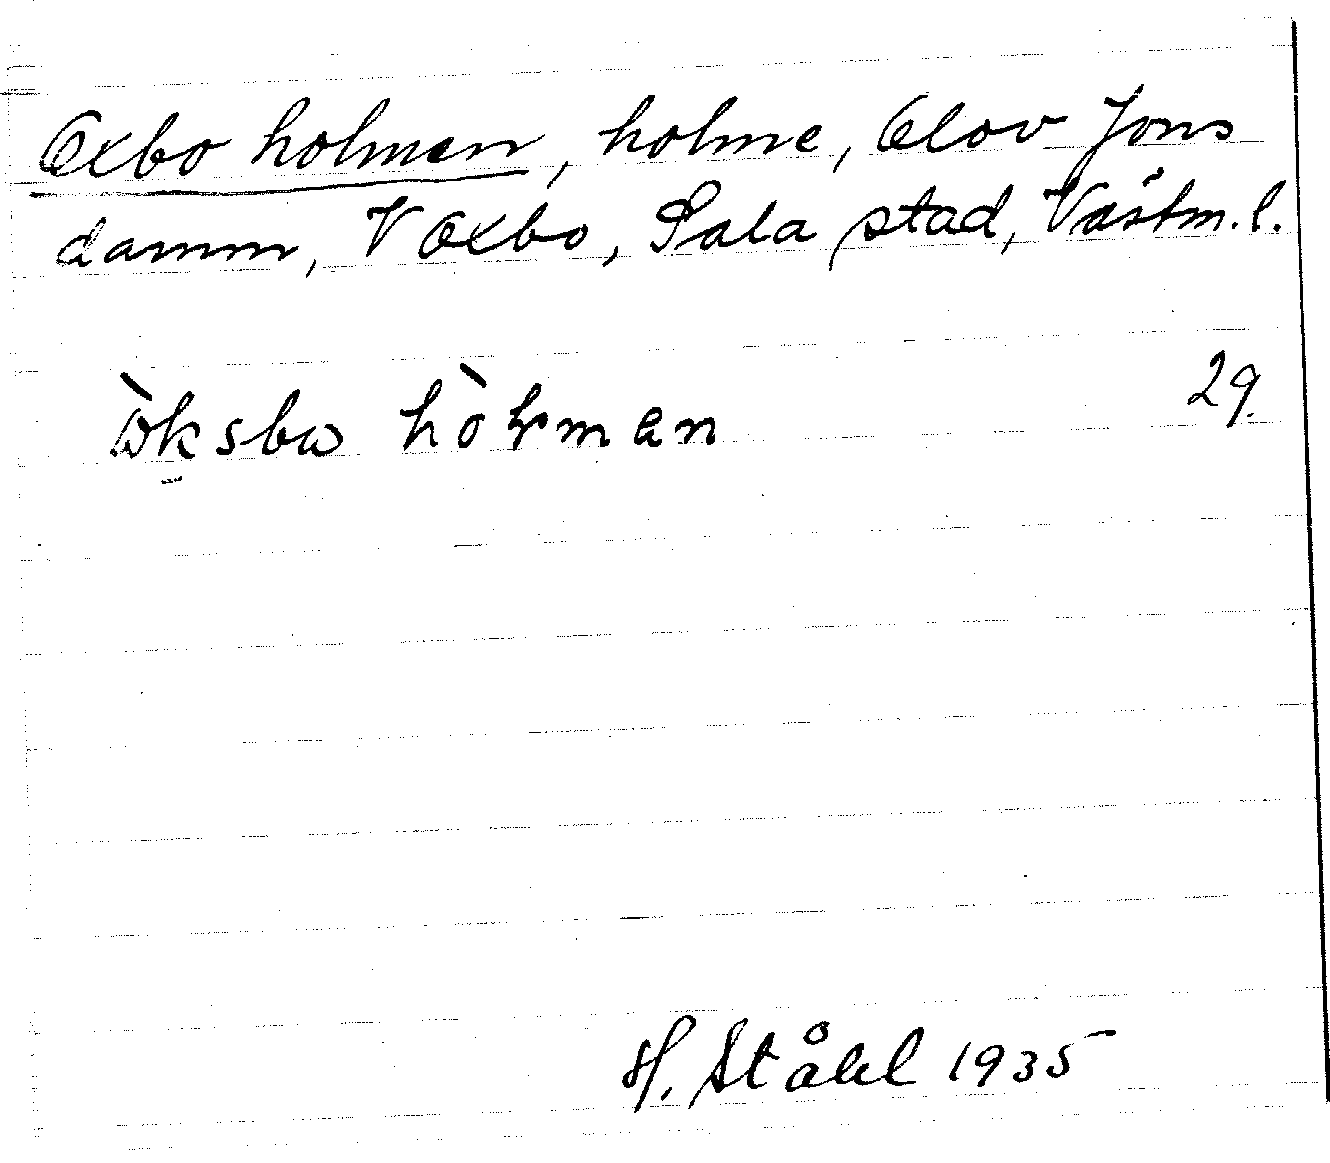 Oxbo holmen, holme, Olov Jons
damm, V Oxbo, Sala stad, Västm. l.
29.
ὼksbω hòɫmen
H. Ståhl 1935